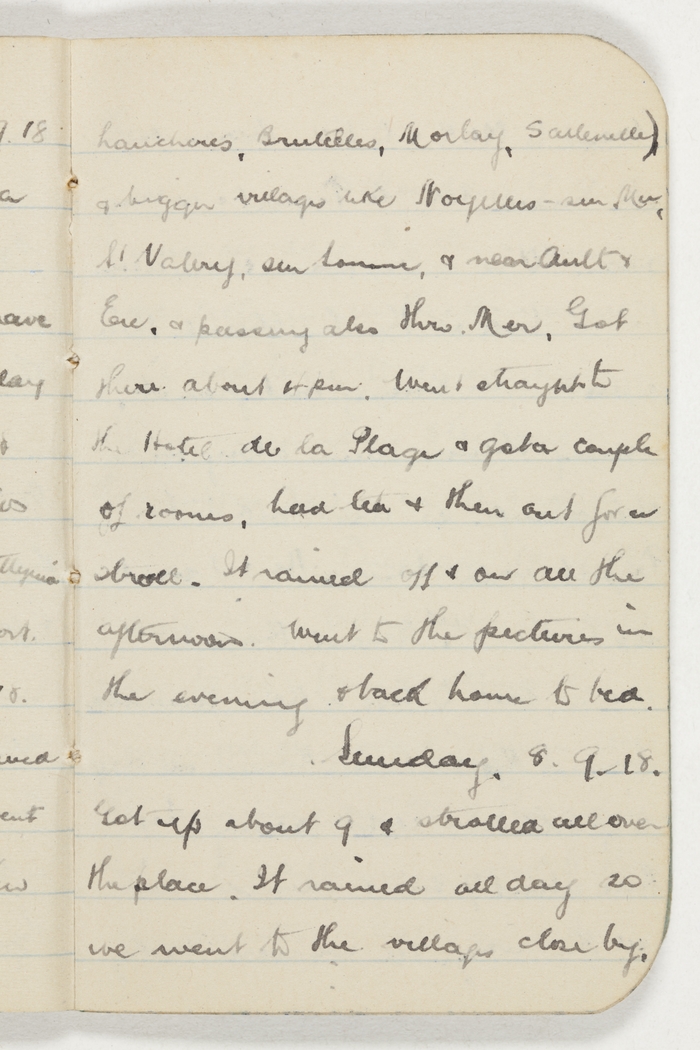 9.18
a
ave
lay
Lancheres, Brutelles, Morlay, Sallenelle)
& bigger villages like Noyelles-sur Mer,
St. Valery, sur Somme, & near Ault &
Eu, & passing also thro. Mer. Got
there about 4 pm. Went straight to
the Hotel de la Plage & got a couple
of rooms, had tea & then out for a
stroll. It rained off & on all the
afternoon. Went to the pictures in
the evening & back home to bed.
Sunday. 8. 9. 18.
Got up about 9 & strolled all over
the place. It rained all day so
we went to the village close by,